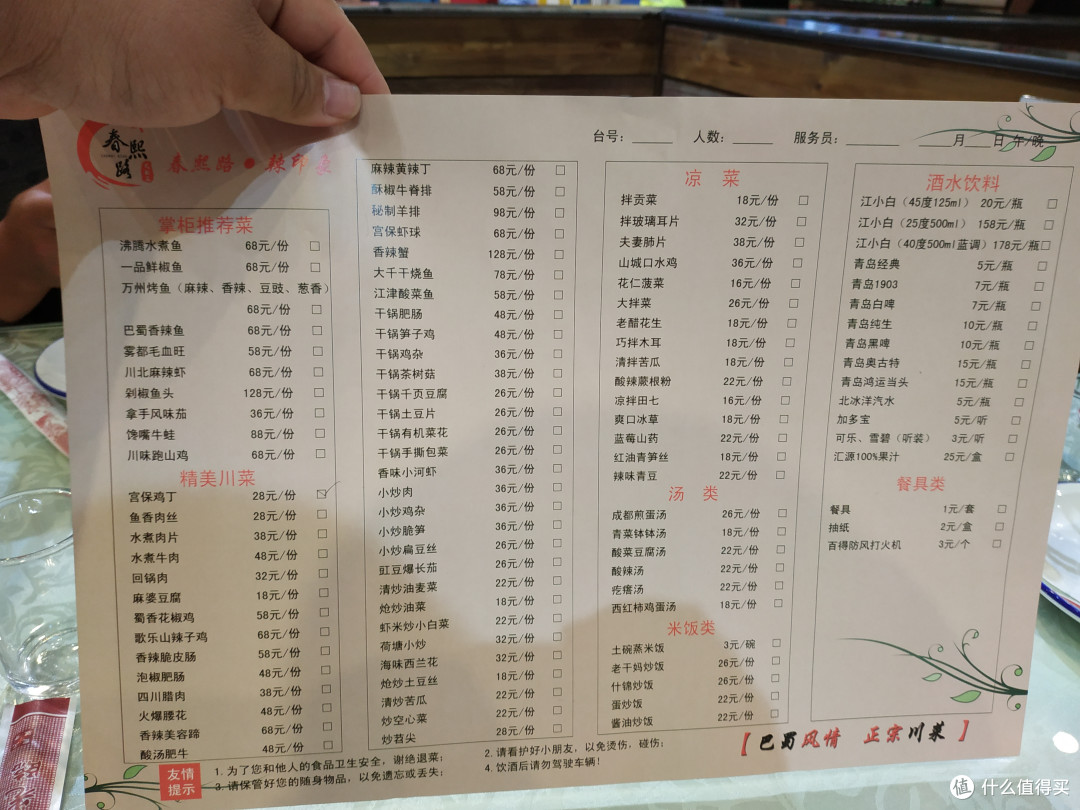 春熙路
春熙路●辣印象
台号：______ 人数：______ 服务员：________ ____月____日 午/晚
掌柜推荐菜
沸腾水煮鱼 68元/份 □
一品鲜椒鱼 68元/份 □
万州烤鱼（麻辣、香辣、豆豉、葱香）
68元/份 □
巴蜀香辣鱼 68元/份 □
雾都毛血旺 58元/份 □
川北麻辣虾 68元/份 □
剁椒鱼头 128元/份 □
拿手风味茄 36元/份 □
馋嘴牛蛙 88元/份 □
川味跑山鸡 68元/份 □
精美川菜
宫保鸡丁 28元/份 □
鱼香肉丝 28元/份 □
水煮肉片 38元/份 □
水煮牛肉 48元/份 □
回锅肉 32元/份 □
麻婆豆腐 18元/份 □
蜀香花椒鸡 58元/份 □
歌乐山辣子鸡 68元/份 □
香辣脆皮肠 58元/份 □
泡椒肥肠 48元/份 □
四川腊肉 38元/份 □
火爆腰花 48元/份 □
香辣美容蹄 68元/份 □
酸汤肥牛 48元/份 □
麻辣黄辣丁 68元/份 □
酥椒牛脊排 58元/份 □
秘制羊排 98元/份 □
宫保虾球 68元/份 □
香辣蟹 128元/份 □
大千干烧鱼 78元/份 □
江津酸菜鱼 58元/份 □
干锅肥肠 48元/份 □
干锅笋子鸡 48元/份 □
干锅鸡杂 36元/份 □
干锅茶树菇 38元/份 □
干锅千页豆腐 26元/份 □
干锅土豆片 26元/份 □
干锅有机菜花 26元/份 □
干锅手撕包菜 26元/份 □
香味小河虾 36元/份 □
小炒肉 36元/份 □
小炒鸡杂 36元/份 □
小炒脆笋 36元/份 □
小炒扁豆丝 26元/份 □
豇豆爆长茄 26元/份 □
清炒油麦菜 22元/份 □
炝炒油菜 18元/份 □
虾米炒小白菜 22元/份 □
荷塘小炒 32元/份 □
海味西兰花 32元/份 □
炝炒土豆丝 18元/份 □
清炒苦瓜 22元/份 □
炒空心菜 22元/份 □
炒苕尖 28元/份 □
凉 菜
拌贡菜 18元/份 □
拌玻璃耳片 32元/份 □
夫妻肺片 38元/份 □
山城口水鸡 36元/份 □
花仁菠菜 16元/份 □
大拌菜 26元/份 □
老醋花生 18元/份 □
巧拌木耳 18元/份 □
清拌苦瓜 18元/份 □
酸辣蕨根粉 22元/份 □
凉拌田七 16元/份 □
爽口冰草 18元/份 □
蓝莓山药 22元/份 □
红油青笋丝 18元/份 □
辣味青豆 22元/份 □
汤 类
成都煎蛋汤 26元/份 □
青菜钵钵汤 18元/份 □
酸菜豆腐汤 22元/份 □
酸辣汤 22元/份 □
疙瘩汤 22元/份 □
西红柿鸡蛋汤 18元/份 □
米饭类
土碗蒸米饭 3元/碗 □
老干妈炒饭 26元/份 □
什锦炒饭 26元/份 □
蛋炒饭 22元/份 □
酱油炒饭 22元/份 □
酒水饮料
江小白（45度125ml） 20元/瓶 □
江小白（25度500ml） 158元/瓶 □
江小白（40度500ml蓝调）178元/瓶 □
青岛经典 5元/瓶 □
青岛1903 7元/瓶 □
青岛白啤 7元/瓶 □
青岛纯生 10元/瓶 □
青岛黑啤 10元/瓶 □
青岛奥古特 15元/瓶 □
青岛鸿运当头 15元/瓶 □
北冰洋汽水 5元/瓶 □
加多宝 5元/听 □
可乐、雪碧（听装） 3元/听 □
汇源100%果汁 25元/盒 □
餐具类
餐具 1元/套 □
抽纸 2元/盒 □
百得防风打火机 3元/个 □
【巴蜀风情 正宗川菜】
友情提示
1.为了您和他人的食品卫生安全，谢绝退菜；
2.请看护好小朋友，以免烫伤，碰伤；
3.请保管好您的随身物品，以免遗忘或丢失；
4.饮酒后请勿驾驶车辆！
值 什么值得买